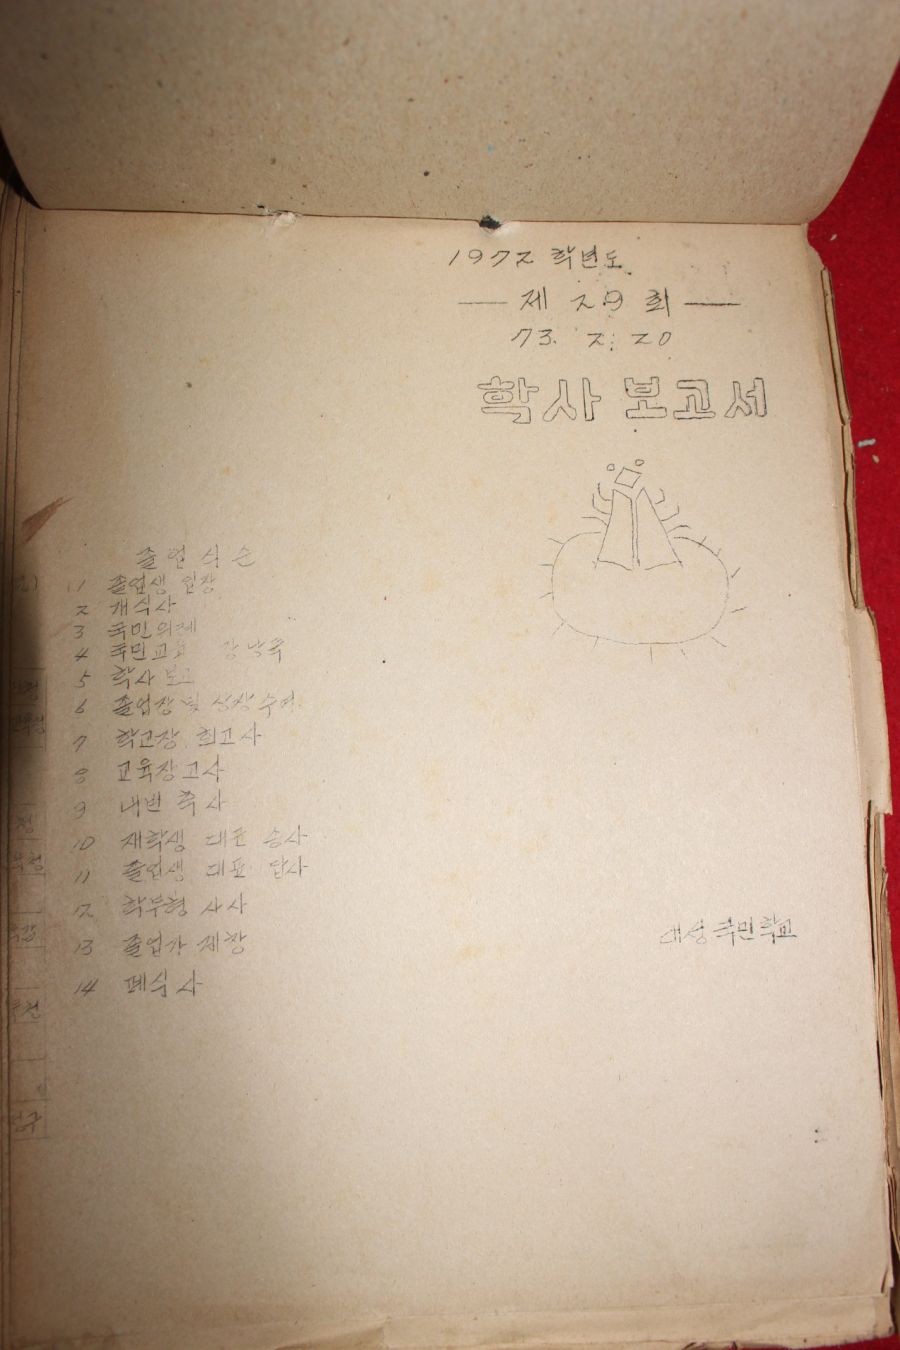 1972 학년도
— 제 29 회 —
73. 2. 20
학사 보고서
졸업식순
1 졸업생 입장
2 개식사
3 국민의례
4 국민교육 낭독
5 학사 보고
6 졸업장 및 상장 수여
7 학교장 회고사
8 교육장 고사
9 내빈 축사
10 재학생 대표 송사
11 졸업생 대표 답사
12 학부형 사사
13 졸업가 제창
14 폐식사
대성 국민학교